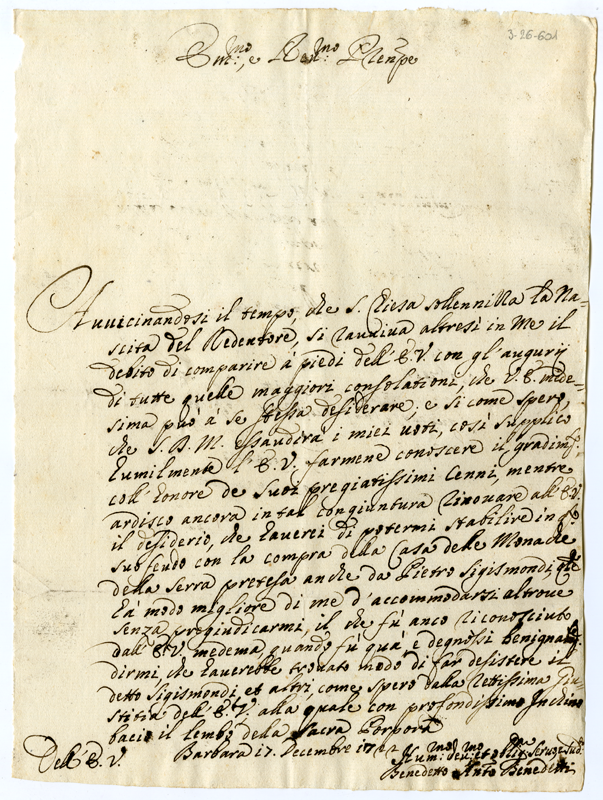 3-26-601
Em:mo, e Re:mo Prenpe
Avvicinandosi il tempo, che S. Chiesa sollennizza la Na-
scita del Redentore, si ravviva altresì in me il
debito di comparire à piedi dell'E.V. con gl'augurij
di tutte quelle maggiori consolationi, che V.E. mede-
sima può à se stessa desiderare, e si come spero,
che S.D.M. essaudirà i miei voti, così supplico
humilmente l'E.V. farmene conoscere il gradim:to
coll'honore de suoi pregiatissimi cenni, mentre
ardisco ancora in tal congiuntura rinovare all'E.V.
il desiderio, che haverei di potermi stabilire in
suo feudo con la compra della Casa delle Monache
della Serra pretesa anche da Pietro Sigismondi, che
hà modo migliore di me d'accommodarsi altrove
senza pregiudicarmi, il che fù anco riconosciuto
dall'E.V. medema, quando fù quà, e degnossi benignam:te
dirmi, che haverebbe trovato modo di far desistere il
detto Sigismondi, et altri, come spero dalla rettissima Giu-
stitia dell'E.V. alla quale con profondissimo Inchino
bacio il lembo della Sacra Porpora
Dell'E.V. Barbara 17. Decembre 1722
Hum:mo Dev:mo et Servo e Sud:
Benedetto Ant:o Benedetti